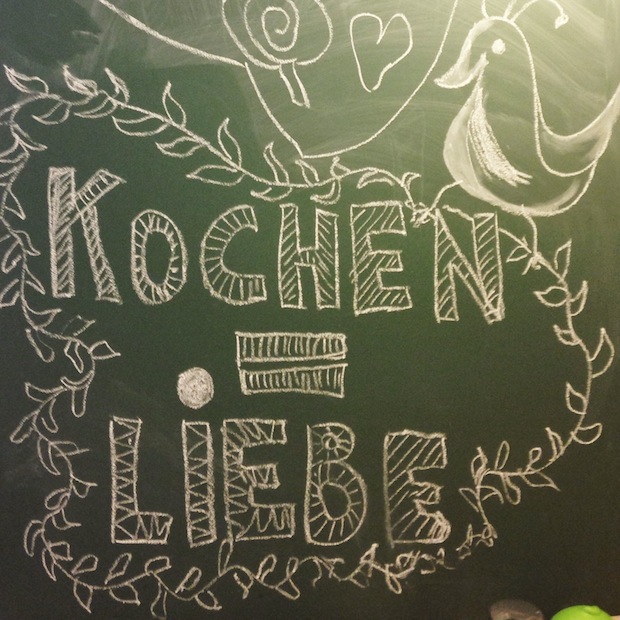 KOCHEN
=
LIEBE